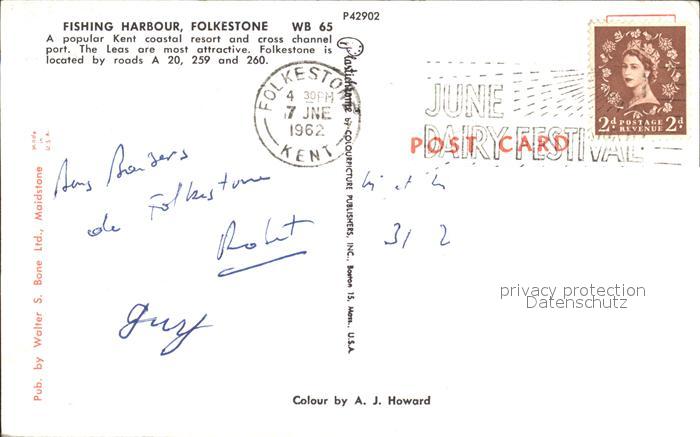 P42902
FISHING HARBOUR, FOLKESTONE WB 65
A popular Kent coastal resort and cross channel
port. The Leas are most attractive. Folkestone is
located by roads A 20, 259 and 260.
FOLKESTONE
4 30PM
7 JNE
1962
KENT
JUNE
DAIRY FESTIVAL
2d POSTAGE 2d
REVENUE
POST CARD
Made in
U.S.A.
Pub. by Walter S. Bone Ltd., Maidstone
Plastichrome by COLOURPICTURE PUBLISHERS, INC., Boston 15, Mass., U.S.A.
Bons Baisers
de Folkestone
Robert
Guy
31 2
privacy protection
Datenschutz
Colour by A. J. Howard